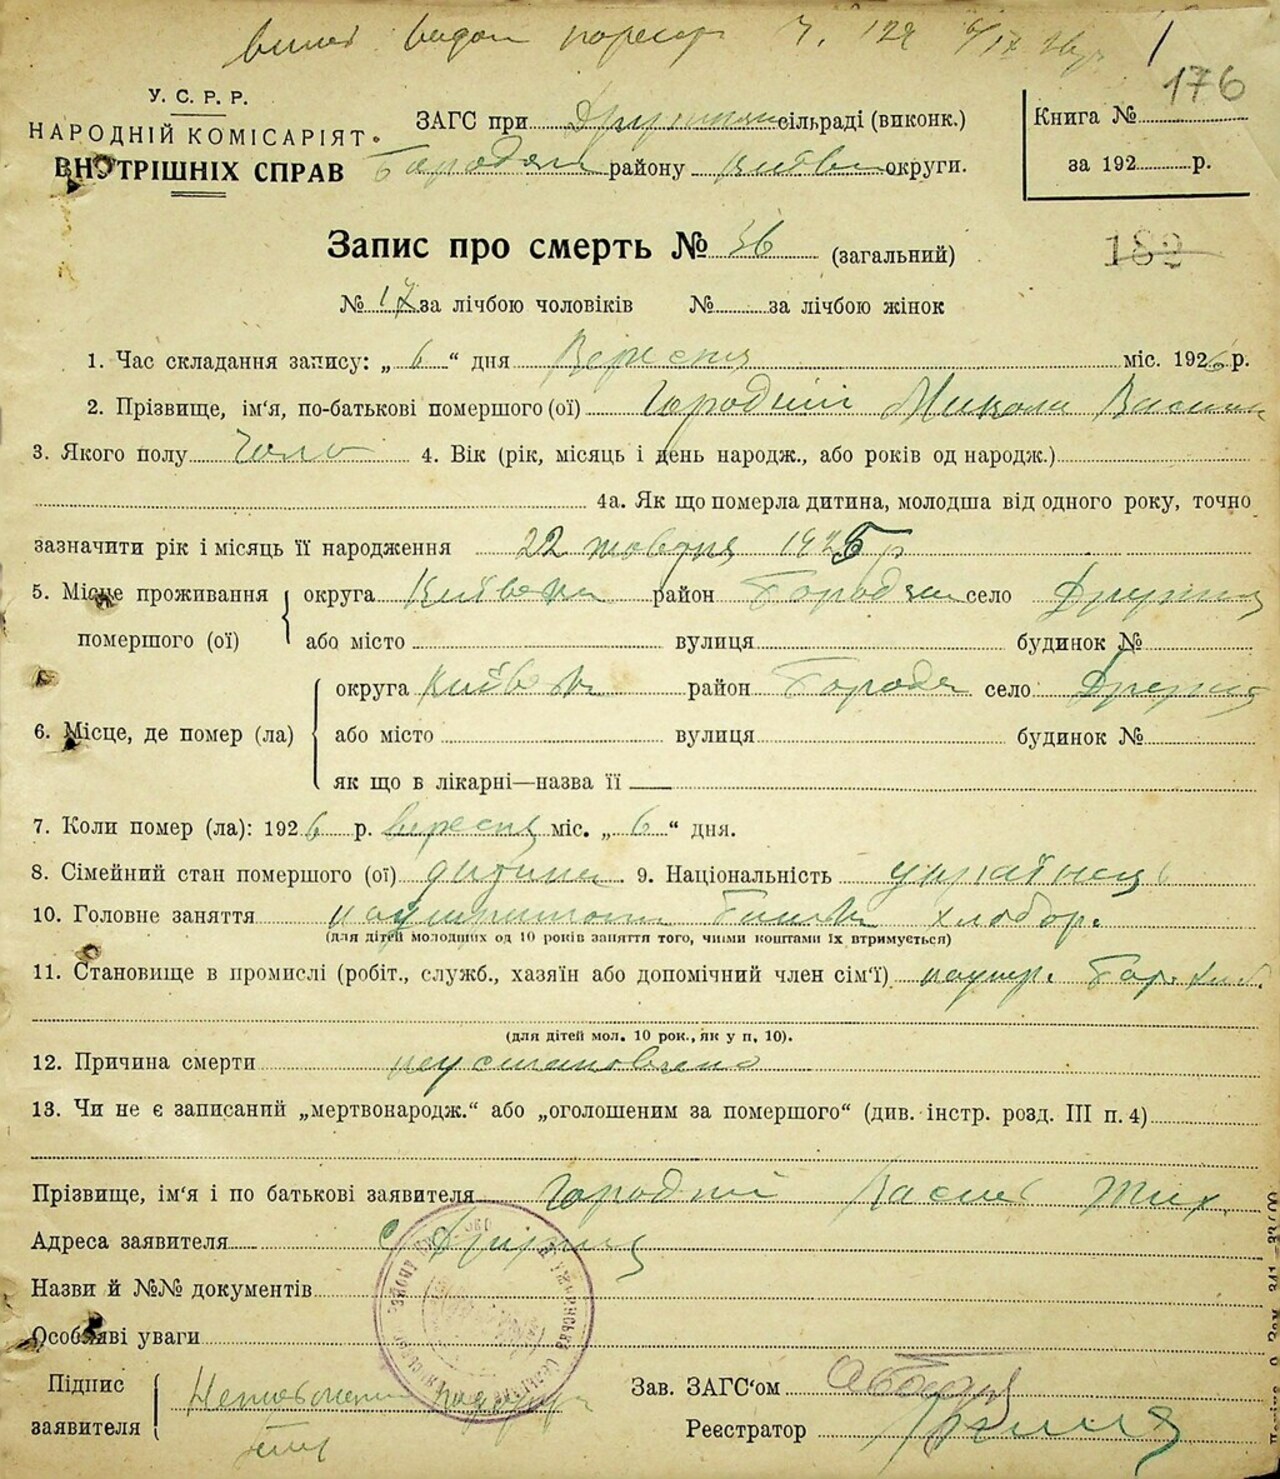 176
У. С. Р. Р.
НАРОДНІЙ КОМІСАРІЯТ
ВНУТРІШНІХ СПРАВ
ЗАГС при сільраді (виконк.)
Бородян району Київськ округи.
Книга №
за 192 р.
Запис про смерть № 36 (загальний)
182
№ 17 за лічбою чоловіків № за лічбою жінок
1. Час складання запису: „ 6 “ дня Вересня міс. 1926 р.
2. Прізвище, ім‘я, по-батькові помершого (ої) Городній Микола Васил
3. Якого полу Чоло 4. Вік (рік, місяць і день народж., або років од народж.)
4а. Як що померла дитина, молодша від одного року, точно
зазначити рік і місяць її народження 22 жовтня 1925 р
5. Місце проживання
помершого (ої)
округа Київськ район Бородян село
або місто вулиця будинок №
6. Місце, де помер (ла)
округа Київськ район Бородя село
або місто вулиця будинок №
як що в лікарні—назва її
7. Коли помер (ла): 1926 р. вересня міс. „ 6 “ дня.
8. Сімейний стан помершого (ої) дитина 9. Національність українец
10. Головне заняття хлібор.
(для дітей молодших од 10 років заняття того, чиїми коштами їх втримується)
11. Становище в промислі (робіт., служб., хазяїн або допомічний член сім‘ї)
(для дітей мол. 10 рок., як у п, 10).
12. Причина смерти неустановлено
13. Чи не є записаний „мертвонародж.“ або „оголошеним за помершого“ (див. інстр. розд. III п. 4)
Прізвище, ім‘я і по батькові заявителя Городній Василь Тих.
Адреса заявителя с
Назви й №№ документів
Особливі уваги
Підпис
заявителя
Зав. ЗАГС‘ом
Реєстратор